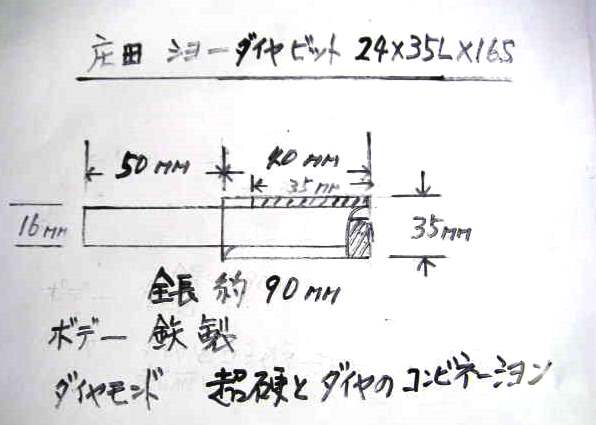 庄田 ショーダイヤビット 24×35L×16S
50mm 40mm
35mm
16mm 35mm
全長 約 90mm
ボデー 鉄製
ダイヤモンド 超硬とダイヤのコンビネーション